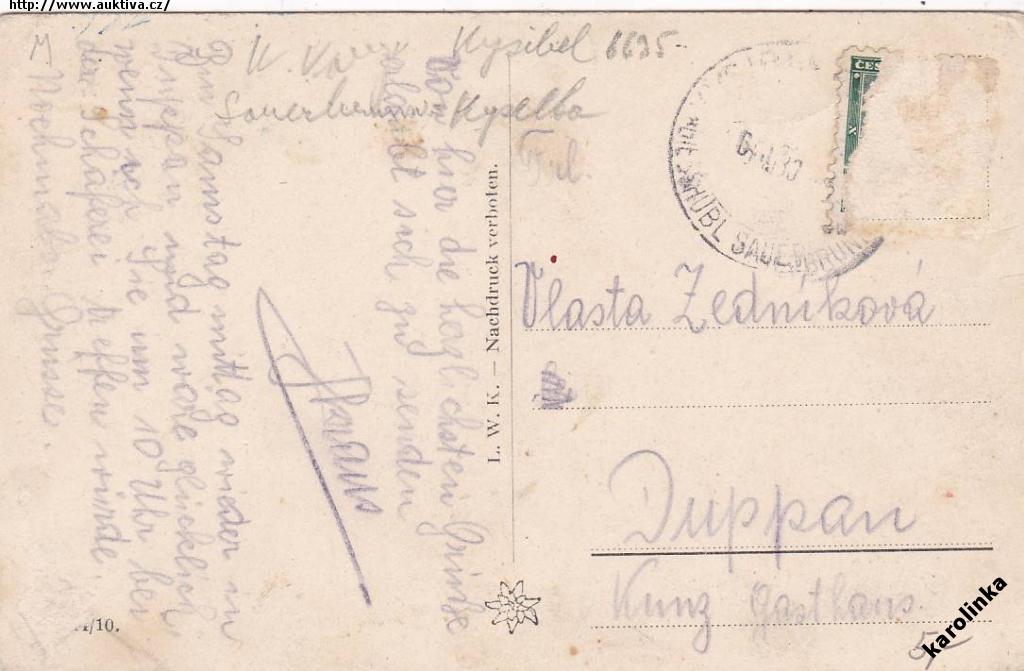 http://www.auktiva.cz/
Kysibel 6635-
Sauerbrunn-Kyselka
Von hier die herzlichsten Grüsse
erlaubt sich zu senden
Hans
Bin Samstag mittag wieder in
Duppau und wäre glücklich
wenn ich Sie um 10 Uhr bei
der Schäferei treffen würde.
Nochmals Grüsse.
/10.
L. W. K. — Nachdruck verboten.
ČES
SAUERBRUNN
Frl.
Vlasta Zedníková
in
Duppau
Kunz Gasthaus.
5-
karolinka